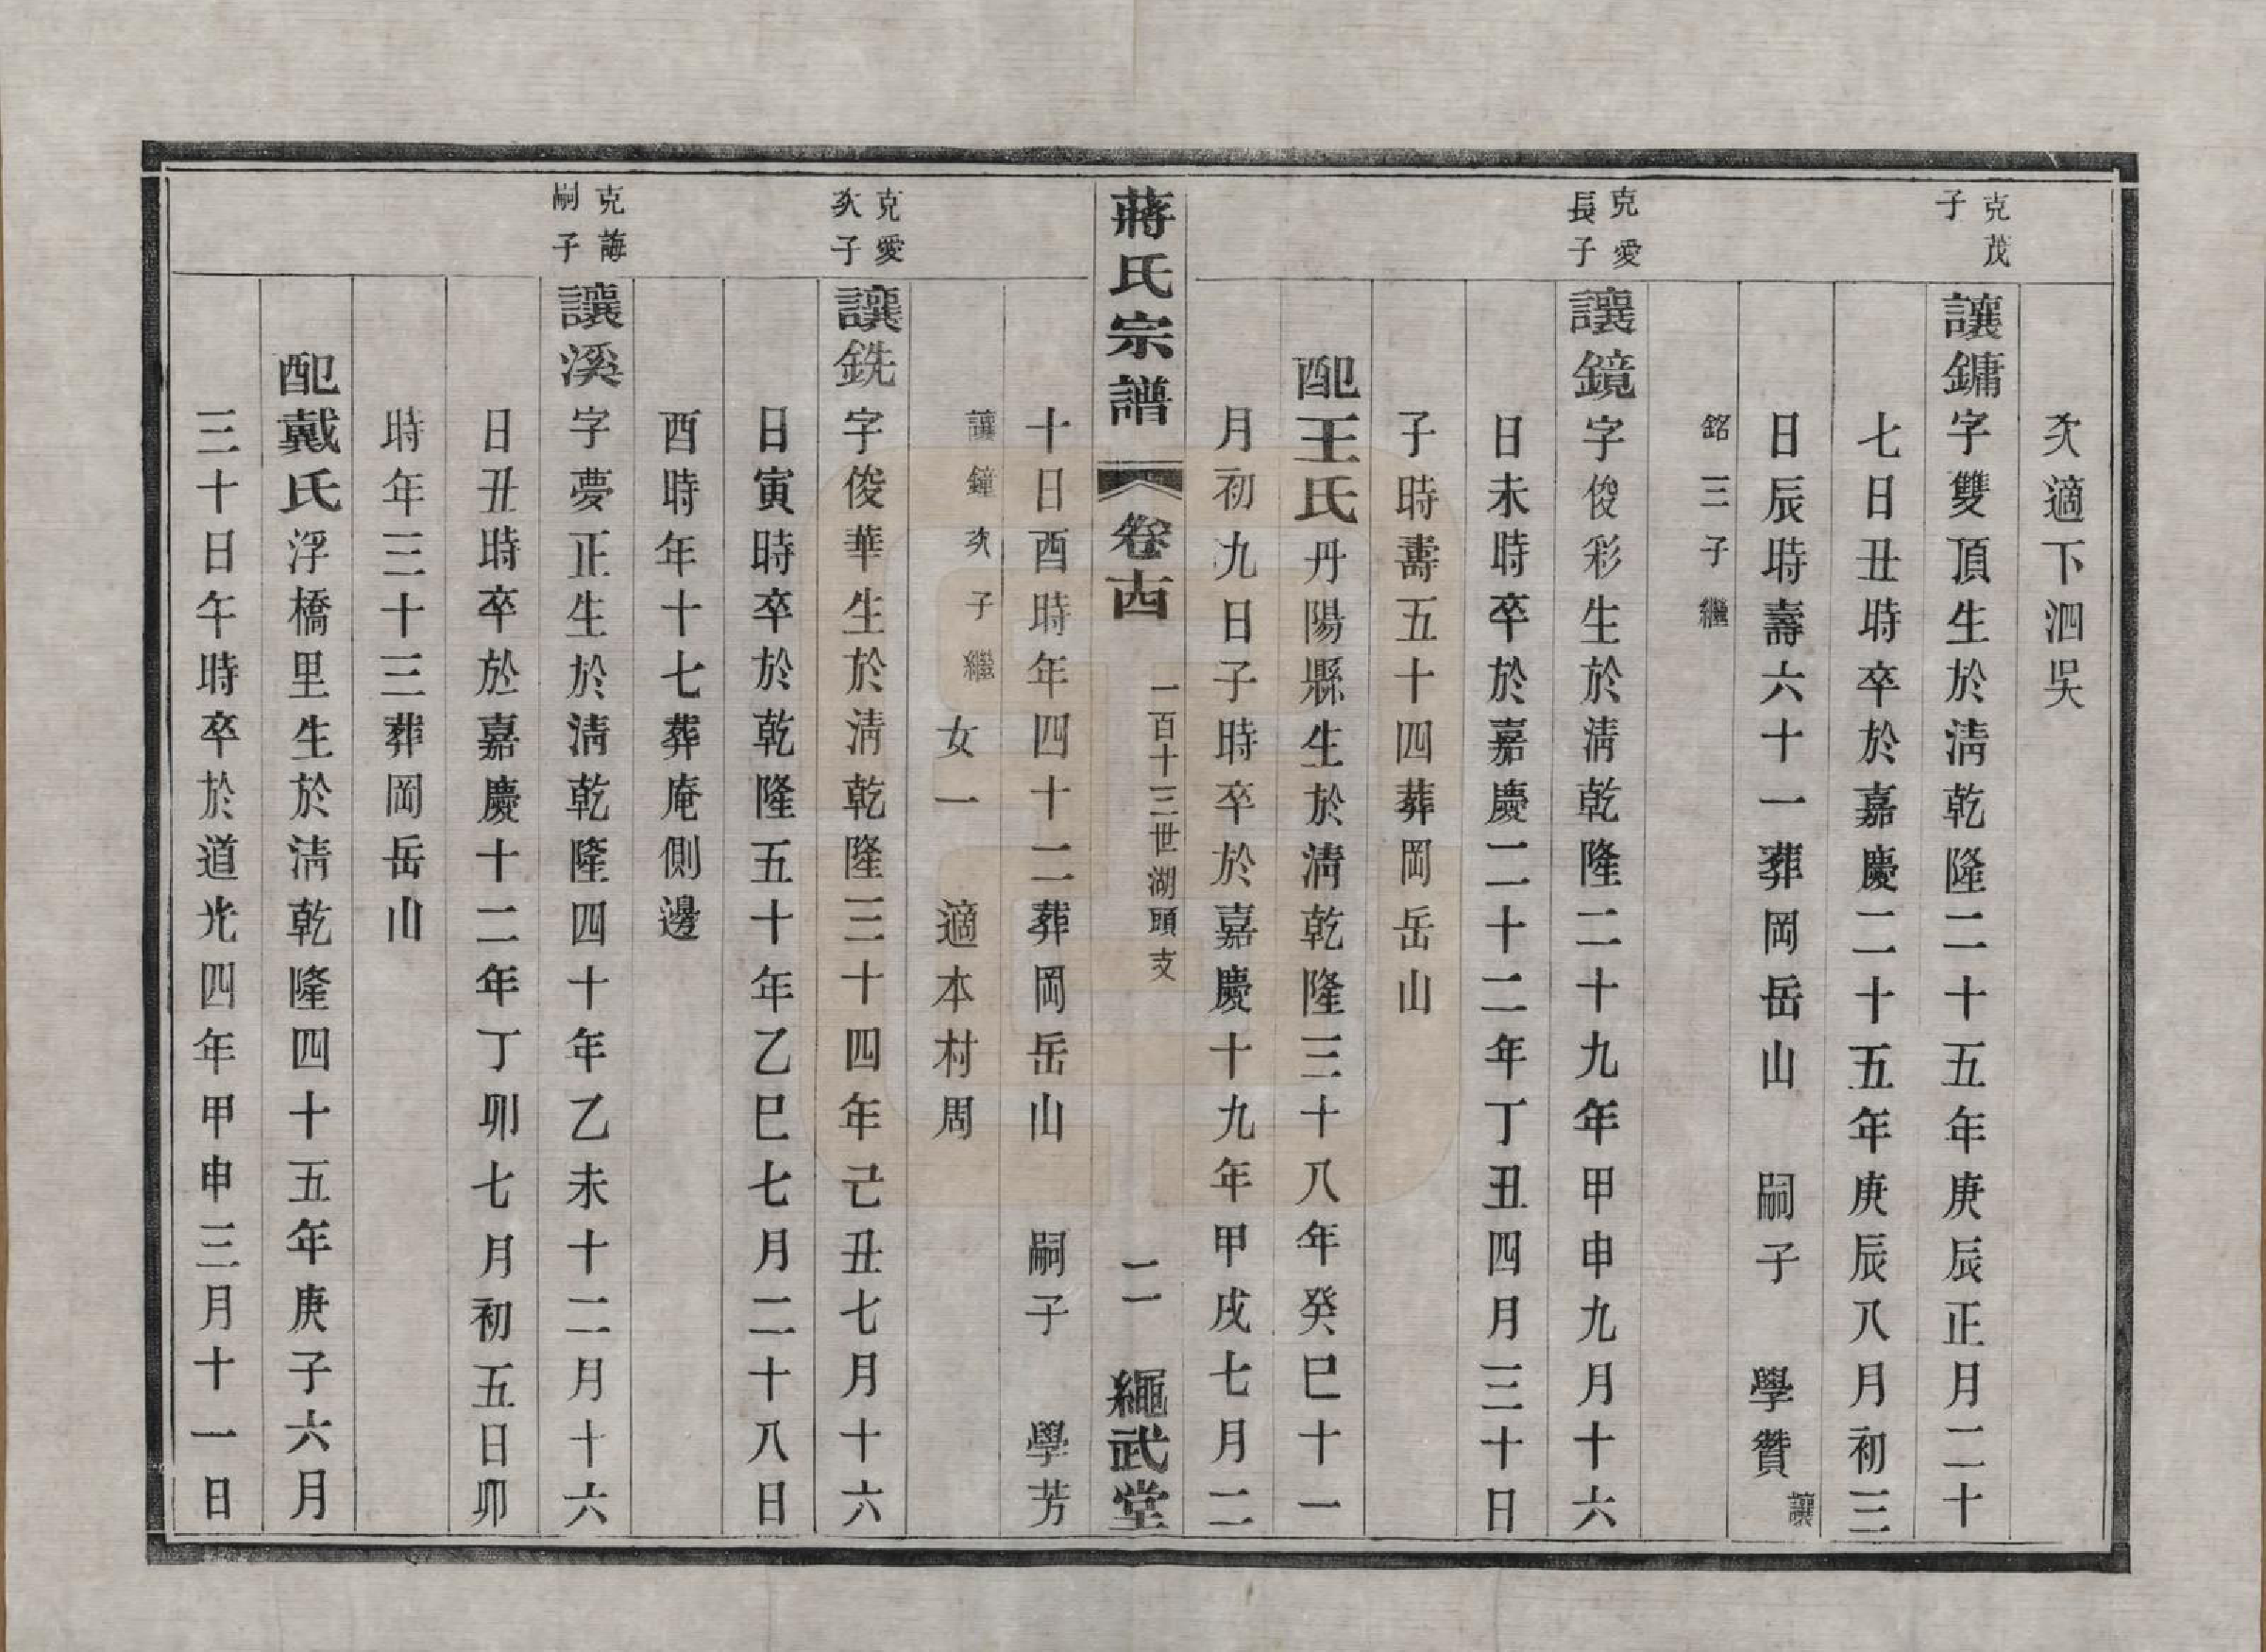 次適下泗吳
克茂
子
讓鏞字雙頂生於淸乾隆二十五年庚辰正月二十
七日丑時卒於嘉慶二十五年庚辰八月初三
日辰時壽六十一葬岡岳山 嗣子 學贊 讓
銘三子繼
克愛
長子
讓鏡字俊彩生於淸乾隆二十九年甲申九月十六
日未時卒於嘉慶二十二年丁丑四月三十日
子時壽五十四葬岡岳山
配王氏丹陽縣生於淸乾隆三十八年癸巳十一
月初九日子時卒於嘉慶十九年甲戌七月二
蔣氏宗譜 卷十四 一百十三世湖頭支 二 繩武堂
十日酉時年四十二葬岡岳山 嗣子 學芳
讓鐘次子繼 女一 適本村周
克愛
次子
讓銑字俊華生於淸乾隆三十四年己丑七月十六
日寅時卒於乾隆五十年乙巳七月二十八日
酉時年十七葬庵側邊
克誨
嗣子
讓溪字夢正生於淸乾隆四十年乙未十二月十六
日丑時卒於嘉慶十二年丁卯七月初五日卯
時年三十三葬岡岳山
配戴氏浮橋里生於淸乾隆四十五年庚子六月
三十日午時卒於道光四年甲申三月十一日